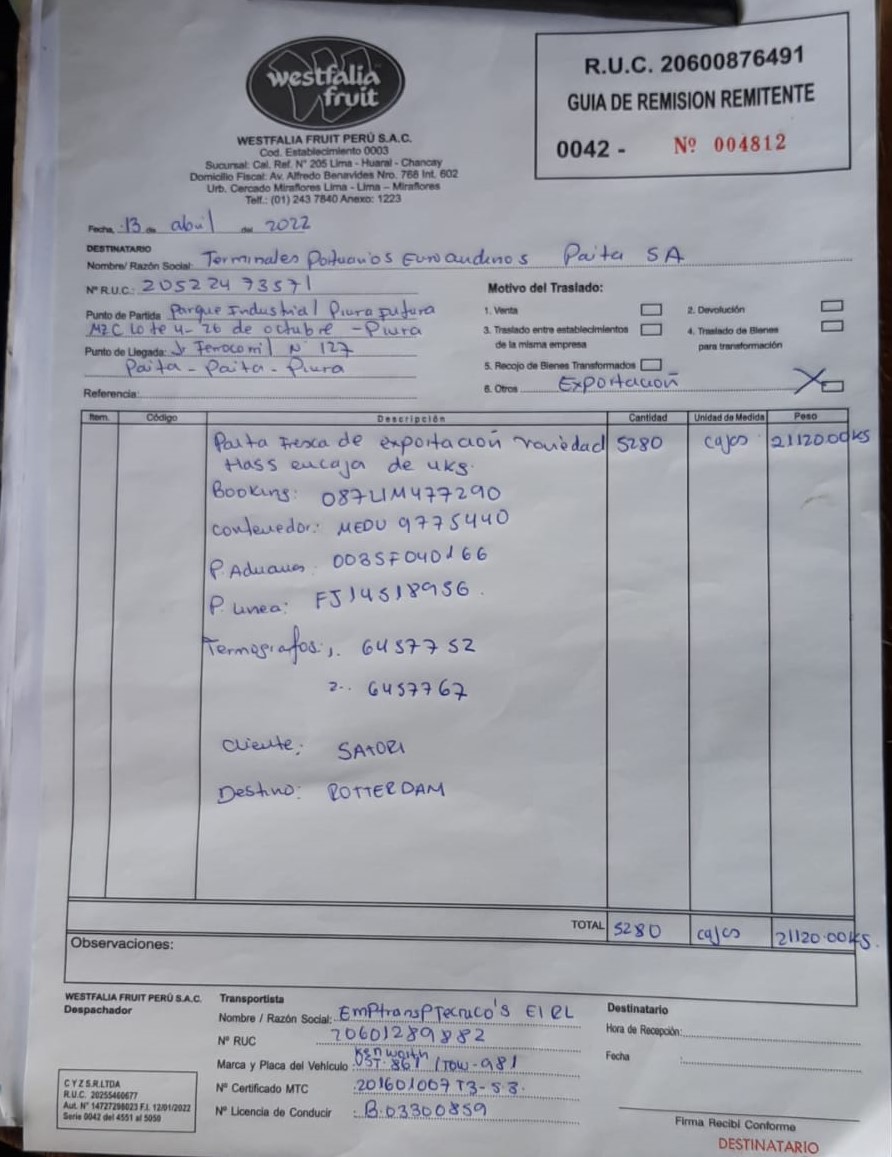 westfalia
fruit
R.U.C. 20600876491
GUIA DE REMISION REMITENTE
0042 - Nº 004812
WESTFALIA FRUIT PERÚ S.A.C.
Cod. Establecimiento 0003
Sucursal: Cal. Ref. N° 205 Lima - Huaral - Chancay
Domicilio Fiscal: Av. Alfredo Benavides Nro. 768 Int. 602
Urb. Cercado Miraflores Lima - Lima – Miraflores
Telf.: (01) 243 7840 Anexo: 1223
Fecha, 13 de abril del 2022
DESTINATARIO
Nombre/ Razón Social: Terminales Portuarios Euroandinos Paita SA
N° R.U.C.: 20522473571
Motivo del Traslado:
Punto de Partida Parque Industrial Piura futura
MZC Lote 4- 26 de octubre - Piura
Punto de Llegada: Jr Ferrocarril N° 127
Paita - Paita - Piura
Referencia:
1. Venta
2. Devolución
3. Traslado entre establecimientos
de la misma empresa
4. Traslado de Bienes
para transformación
5. Recojo de Bienes Transformados
6. Otros Exportación X
Item. Código Descripción Cantidad Unidad de Medida Peso
Palta Fresca de exportación variedad 5280 cajas 21120.00KS
Hass en caja de 4ks.
Booking: 087LIM477290
Contenedor: MEDU 9775440
P. Aduanas: 0035F040166
P. Linea: FJ14518956
Termografos: 1. 6457752
2.. 6457767
Cliente: SATORI
Destino: ROTTERDAM
TOTAL 5280 cajas 21120.00KS.
Observaciones:
WESTFALIA FRUIT PERÚ S.A.C.
Despachador
Transportista
Nombre / Razón Social: EmptranspTecnico's EIRL
N° RUC 20601289882
Marca y Placa del Vehículo Kenworth
/ TOW-981
N° Certificado MTC : 201601007 T3-S3
N° Licencia de Conducir : B.03300859
Destinatario
Hora de Recepción:
Fecha :
C Y Z S.R.LTDA
R.U.C. 20255460677
Aut. N° 14727298023 F.I. 12/01/2022
Serie 0042 del 4551 al 5050
Firma Recibí Conforme
DESTINATARIO